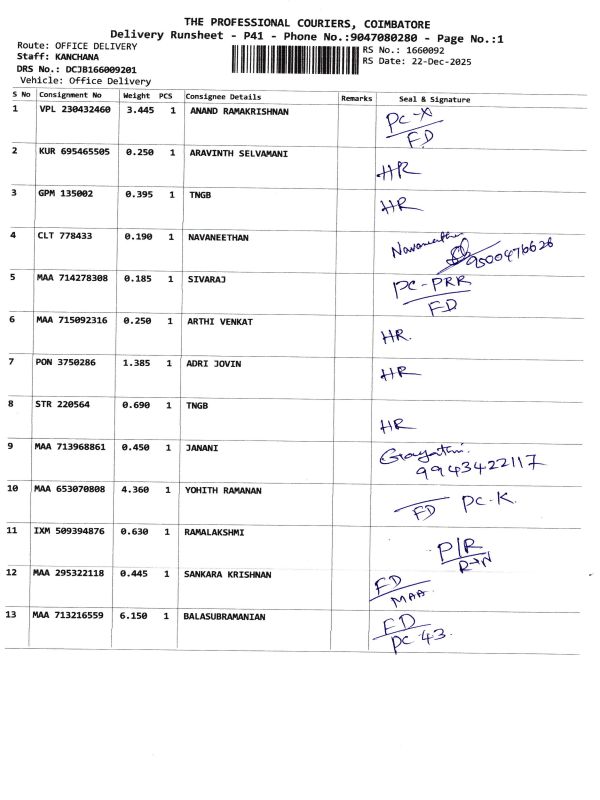 THE PROFESSIONAL COURIERS, COIMBATORE
Delivery Runsheet - P41 - Phone No.:9047080280 - Page No.:1
Route: OFFICE DELIVERY
Staff: KANCHANA
DRS No.: DCJB166009201
Vehicle: Office Delivery
RS No.: 1660092
RS Date: 22-Dec-2025
S No Consignment No Weight PCS Consignee Details Remarks Seal & Signature
1 VPL 230432460 3.445 1 ANAND RAMAKRISHNAN PC-X
FD
2 KUR 695465505 0.250 1 ARAVINTH SELVAMANI HR
3 GPM 135002 0.395 1 TNGB HR
4 CLT 778433 0.190 1 NAVANEETHAN Navaneethan
9500476626
5 MAA 714278308 0.185 1 SIVARAJ PC-PRR
FD
6 MAA 715092316 0.250 1 ARTHI VENKAT HR.
7 PON 3750286 1.385 1 ADRI JOVIN HR
8 STR 220564 0.690 1 TNGB HR
9 MAA 713968861 0.450 1 JANANI Gayathri.
9943422117
10 MAA 653070808 4.360 1 YOHITH RAMANAN FD PC-K.
11 IXM 509394876 0.630 1 RAMALAKSHMI P/R
R→N
12 MAA 295322118 0.445 1 SANKARA KRISHNAN FD
MAA
13 MAA 713216559 6.150 1 BALASUBRAMANIAN FD
PC 43.